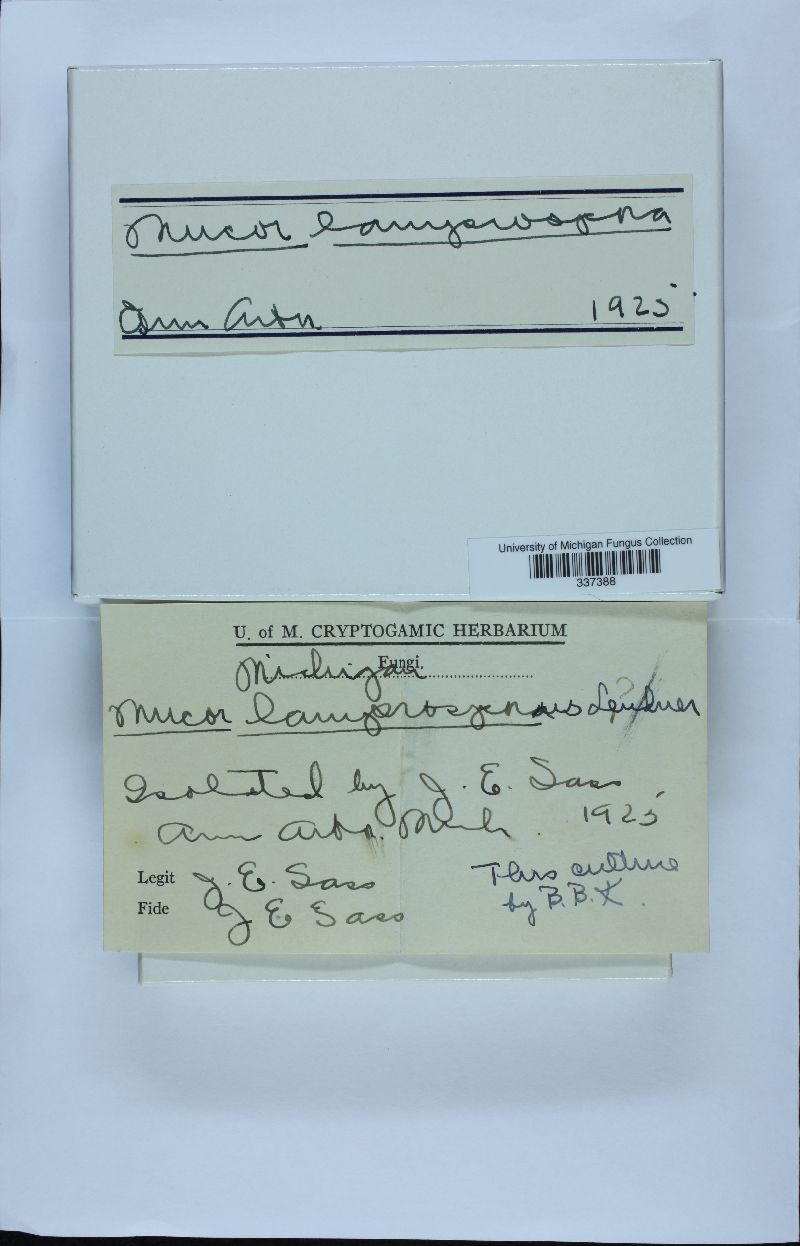 Mucor lamprospora
Ann Arbor 1925
University of Michigan Fungus Collection
337388
U. of M. CRYPTOGAMIC HERBARIUM
Fungi.
Michigan
Mucor lamprosporus Lendner
?
Isolated by J. E. Sass
Ann Arbor. Mich. 1925
Legit J. E. Sass
Fide J E Sass
This culture
by B.B.K.